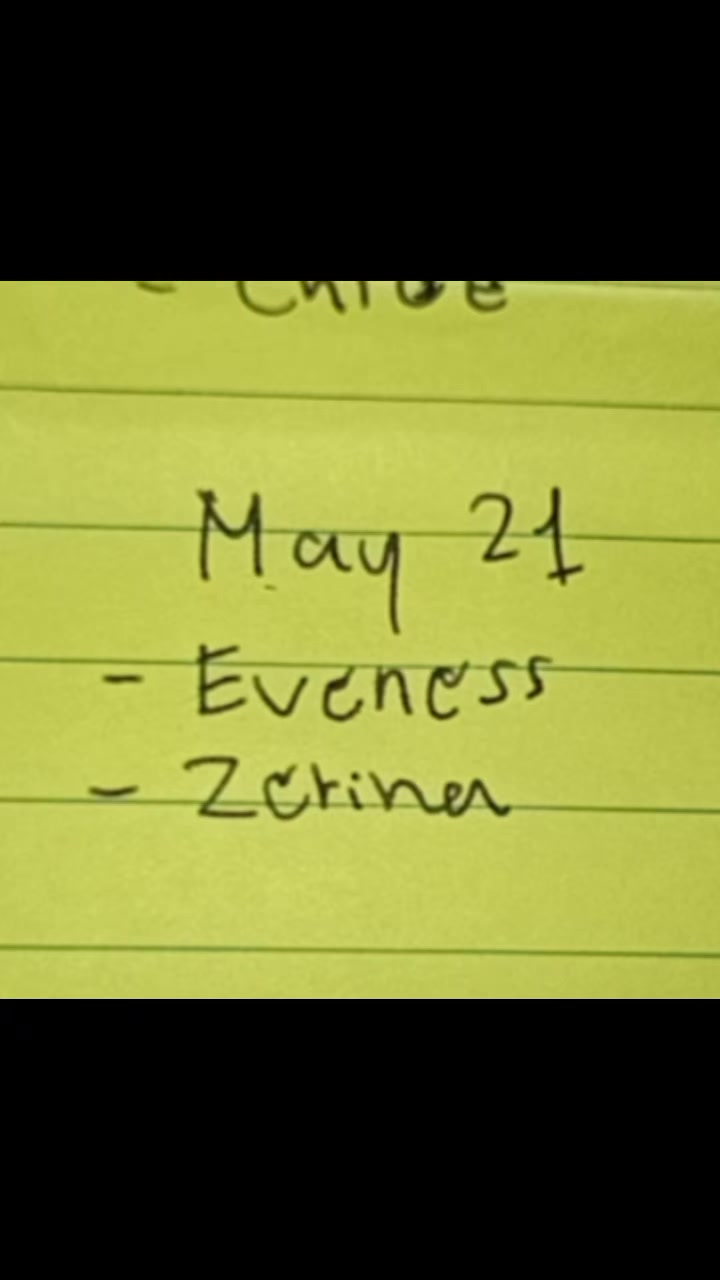 - Chloe
May 21
- Eveness
- Zeriner